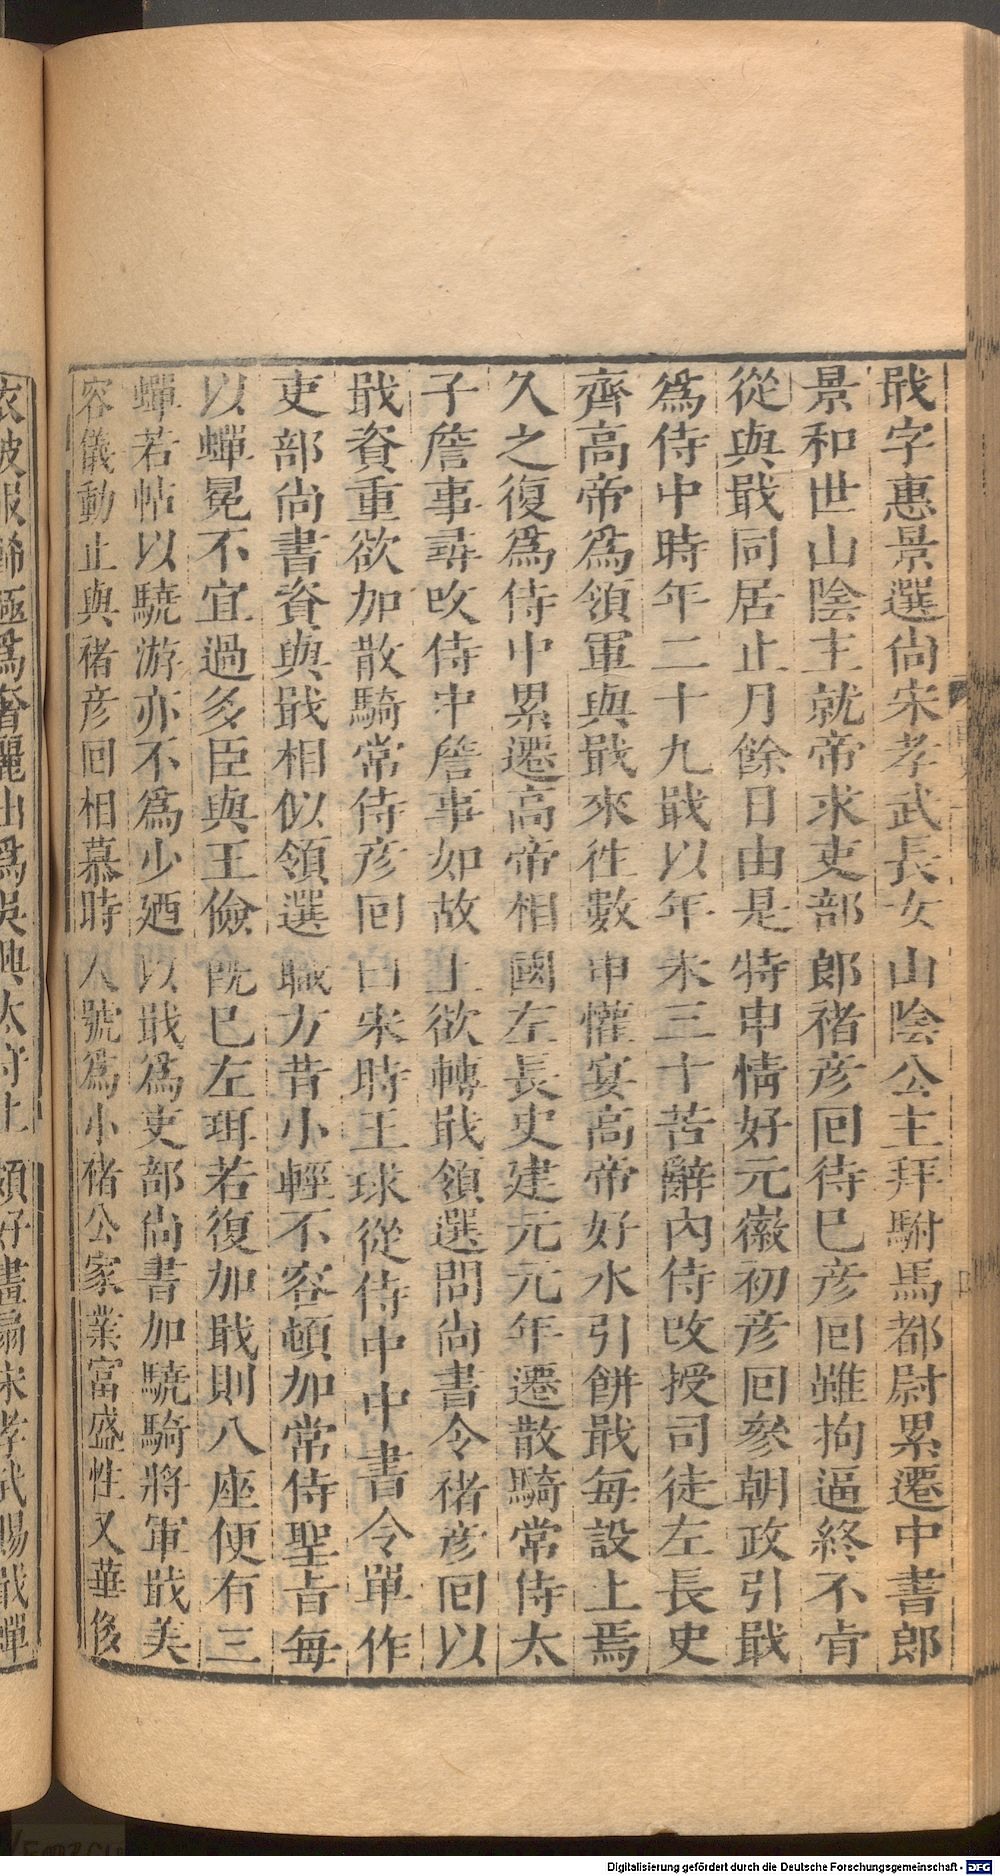 戢字惠景選尚宋孝武長女山陰公主拜駙馬都尉累遷中書郎
景和世山陰主就帝求吏部郎褚彥回待已彥回雖拘逼終不肯
從與戢同居止月餘日由是特申情好元徽初彥回參朝政引戢
爲侍中時年二十九戢以年未三十苦辭內侍改授司徒左長史
齊高帝爲領軍與戢來徃數申懽宴高帝好水引餅戢每設上焉
久之復爲侍中累遷高帝相國左長史建元元年遷散騎常侍太
子詹事尋改侍中詹事如故上欲轉戢領選問尚書令褚彥回以
戢資重欲加散騎常侍彥回曰宋時王球從侍中中書令單作
吏部尚書資與戢相似領選職方昔小輕不容頓加常侍聖旨每
以蟬冕不宜過多臣與王儉旣已左珥若復加戢則八座便有三
蟬若帖以驍游亦不爲少廼以戢爲吏部尚書加驍騎將軍戢美
容儀動止與褚彥回相慕時人號爲小褚公家業富盛性又華侈
衣被服飾極爲奢麗出爲吳興太守上頗好畫扇宋孝武賜戢蟬
Digitalisierung gefördert durch die Deutsche Forschungsgemeinschaft - DFG